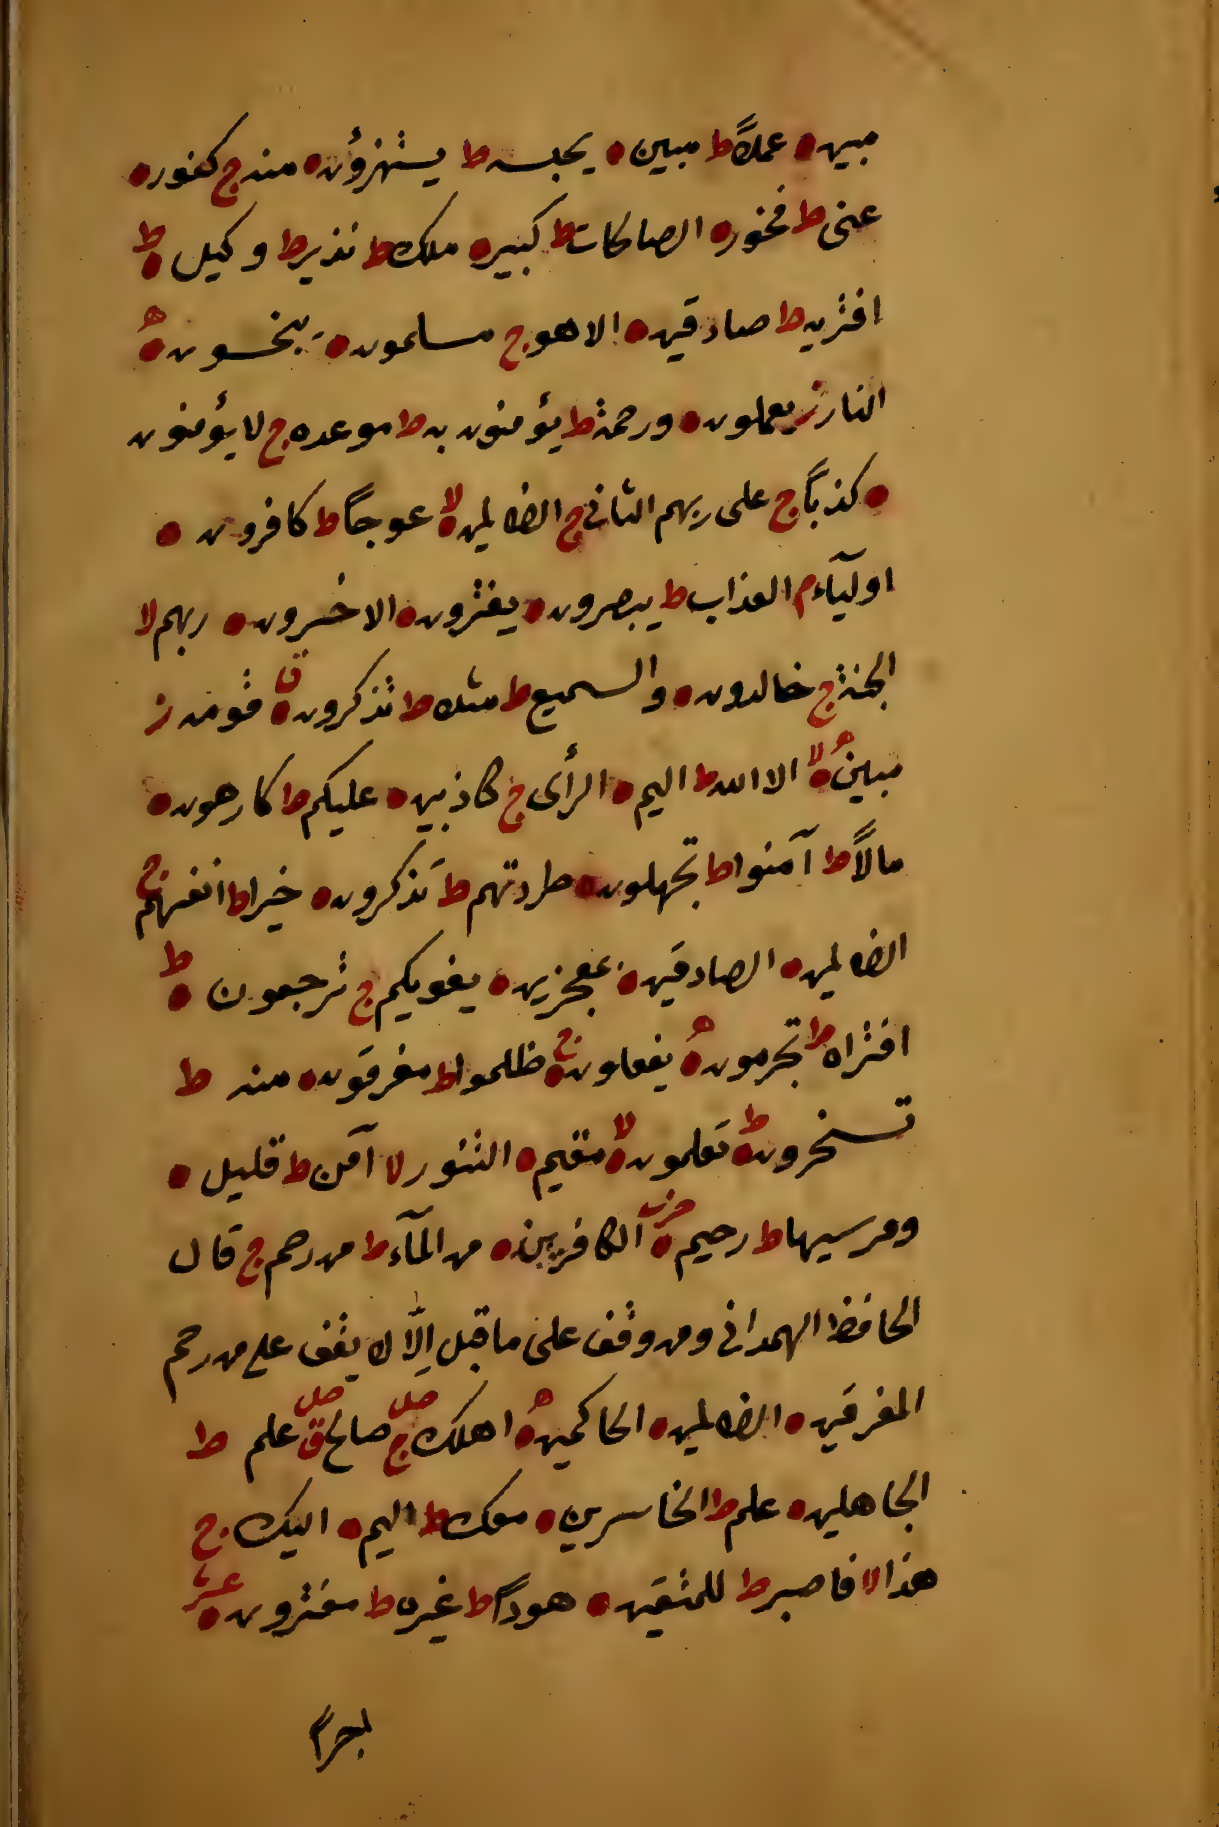 مبين ه عملاً ط مبين ه يحبسه ط يستهزؤن ه منه ج كفور ه
عنى ط فخور ه الصالحات ط كبير ه ملك ط نذير ط وكيل ه ط
افتريه ط صادقين ه الا هو ج مسلمون ه يبخسون ه ه
النار ز يعملون ه ورحمة ط يؤمنون به ط موعده ج لا يؤمنون
ه كذباً ج على ربهم الثانى ج الظالمين ه لا عوجاً ط كافرون ه
اوليآء م العذاب ط يبصرون ه يفترون ه الاخسرون ه ربهم لا
الجنة ج خالدون ه والسميع ط مثلا ط تذكرون ه ق قومه ز
مبين ه لا ه الا الله ط اليم ه الرأى ج كاذبين ه عليكم ط كارهون ه
مالاً ط آمنوا ط تجهلون ه طردتهم ط تذكرون ه خيرا ط انفسهم ج
الظالمين ه الصادقين ه بمعجزين ه يغويكم ج ترجعون ه ط
افتراه ط تجرمون ه ه يفعلون ه ج ظلموا ط مغرقون ه منه ط
تسخرون ه ط تعلمون ه لا مقيم ه التنور لا آمن ط قليل ه
ومرسيها ط رحيم ه حزب الكافرين ه من المآء ط من رحم ج قال
الحافظ الهمدانى ومن وقف على ما قبل اِلّا لا يقف على من رحم
المغرقين ه الظالمين ه الحاكمين ه ه اهلك ج صلى صالح ق صلى علم ط
الجاهلين ه علم ط الخاسرين ه معك ط اليم ه اليك ج
هذا لا فاصبر ط للمتقين ه هوداً ط غيره ط مفترون ه عشر
اجراً